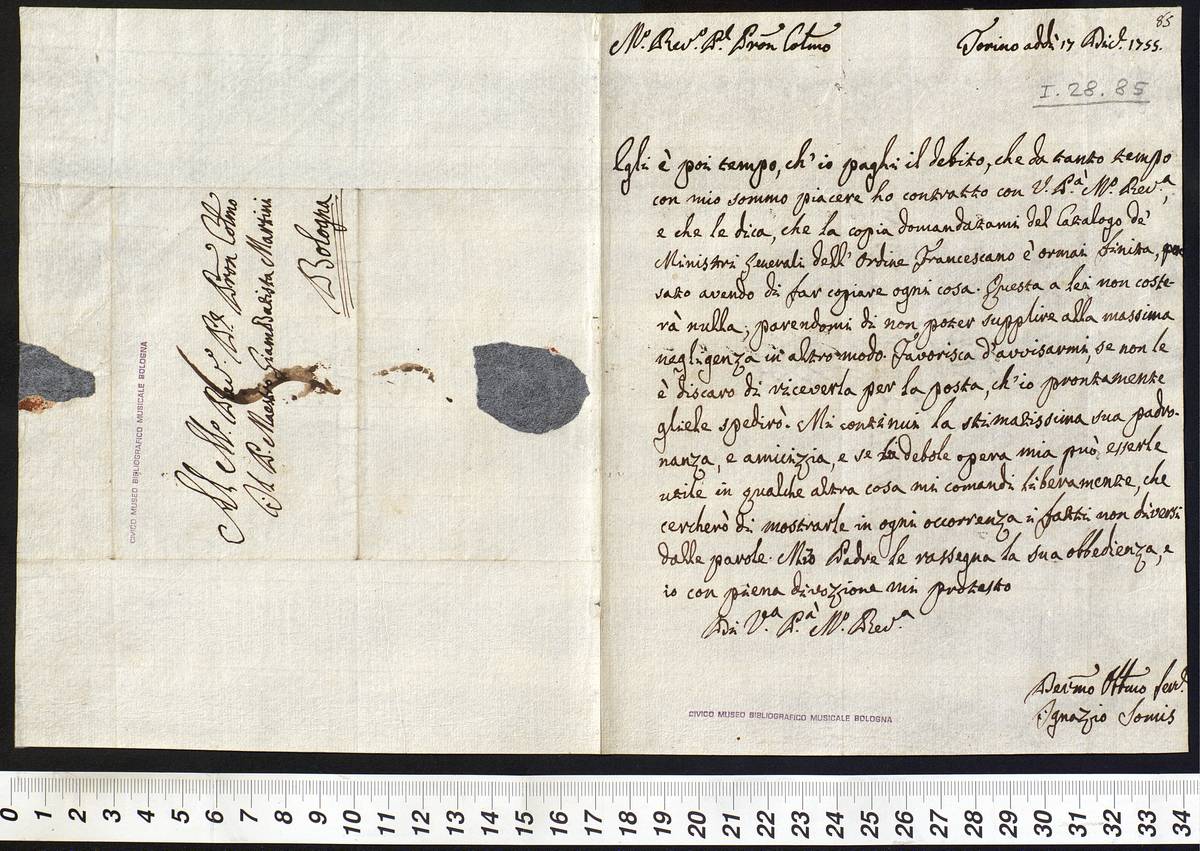 Al Mo. Revo. Pe. Pron Colmo
il P. Maestro Giambatista Martini
Bologna
CIVICO MUSEO BIBLIOGRAFICO MUSICALE BOLOGNA
85
Mo. Revo. Pe. Pron Colmo Torino addì 17 Dic. 1755.
I.28.85
Egli è poi tempo, ch'io paghi il debito, che da tanto tempo
con mio sommo piacere ho contratto con V. Pà. Mo. Reva,
e che le dica, che la copia domandatami del Catalogo de'
Ministri Generali dell'Ordine Francescano è ormai finita, pen
sato avendo di far copiare ogni cosa. Questa a lei non coste-
rà nulla; parendomi di non poter supplire alla massima
negligenza in altro modo. Favorisca d'avvisarmi, se non le
è discaro di riceverla per la posta, ch'io prontamente
gliele spedirò. Mi continui la stimatissima sua padro-
nanza, e amicizia, e se la debole opera mia può esserle
utile in qualche altra cosa mi comandi liberamente, che
cercherò di mostrarle in ogni occorrenza i fatti non diversi
dalle parole. Mio Padre le rassegna la sua obbedienza, e
io con piena divozione mi protesto
Di Va. Pà. Mo. Reva.
Devmo Obbmo serv.
Ignazio Somis
CIVICO MUSEO BIBLIOGRAFICO MUSICALE BOLOGNA
0 1 2 3 4 5 6 7 8 9 10 11 12 13 14 15 16 17 18 19 20 21 22 23 24 25 26 27 28 29 30 31 32 33 34